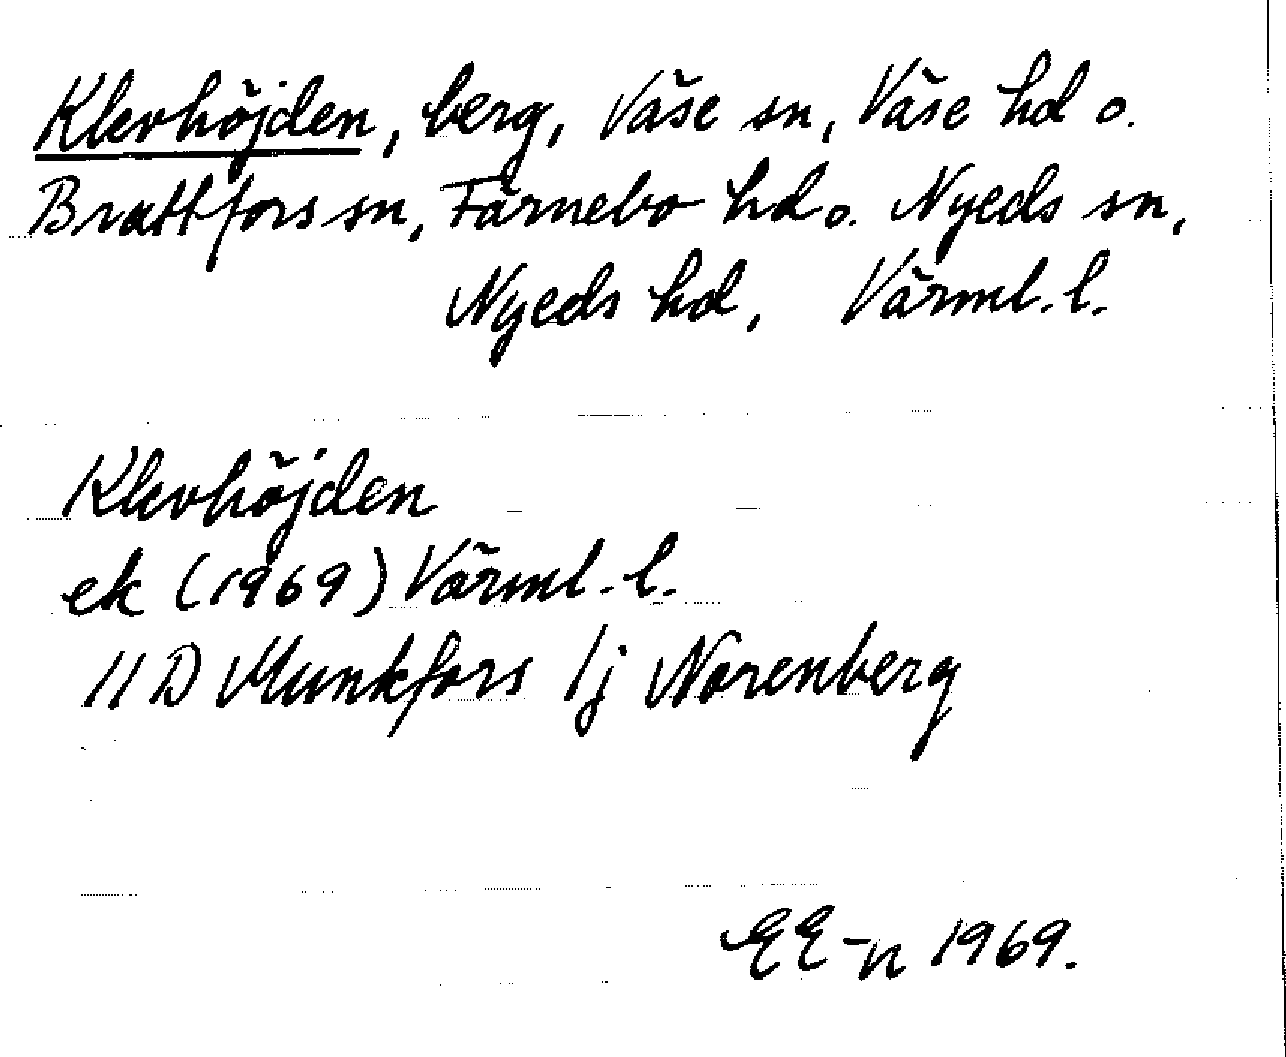 Klevhöjden, berg, Väse sn, Väse hd o.
Brattfors sn, Färnebo hd o. Nyeds sn,
Nyeds hd, Värml. l.
Klevhöjden
ek (1969) Värml. l.
11 D Munkfors 1j Norenberg
EE-n 1969.